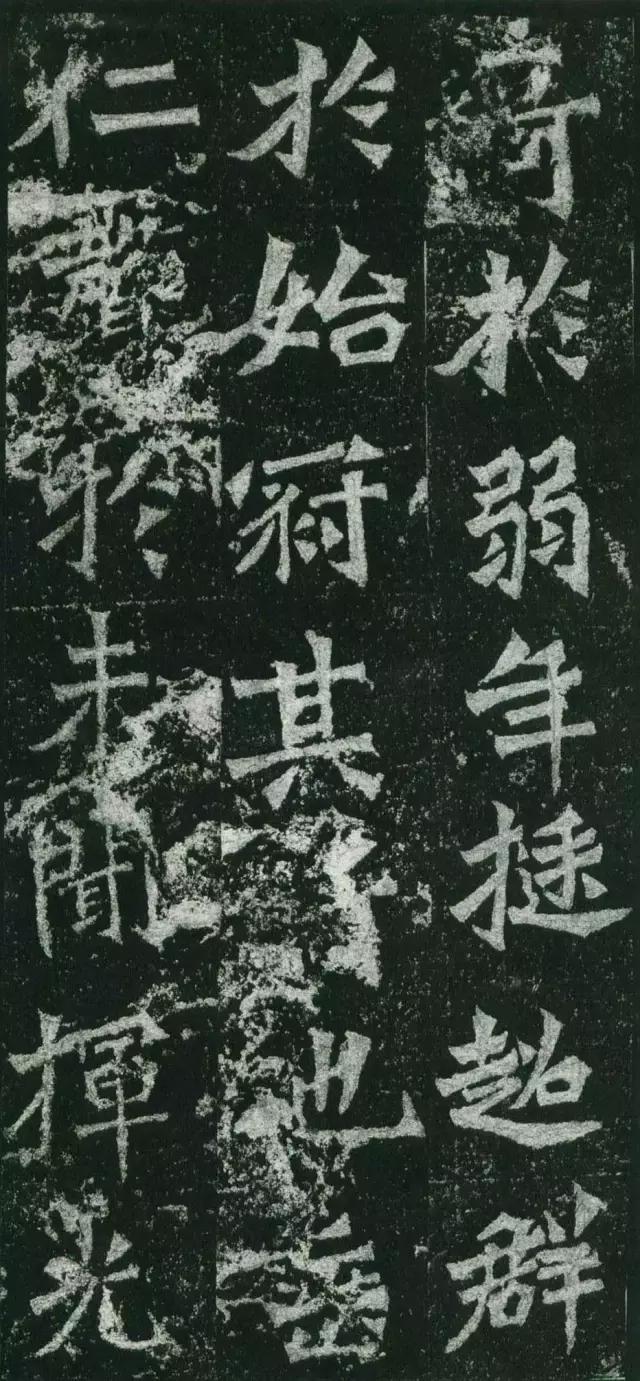 奇於弱年挺超群
於始冠其也垂
仁聲於未聞揮光